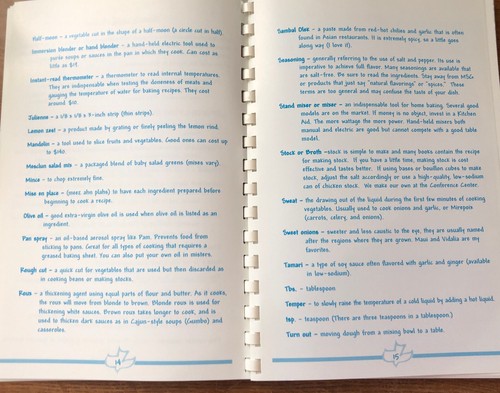 Half-moon – a vegetable cut in the shape of a half-moon (a circle cut in half)
Immersion blender or hand blender – a hand-held electric tool used to
purée soups or sauces in the pan in which they cook. Can cost as
little as $19.
Instant-read thermometer – a thermometer to read internal temperatures.
They are indispensable when testing the doneness of meats and
gauging the temperature of water for baking recipes. They cost
around $10.
Julienne – a 1/8 x 1/8 x 3-inch strip (thin strips).
Lemon zest – a product made by grating or finely peeling the lemon rind.
Mandolin – a tool used to slice fruits and vegetables. Good ones can cost up
to $180.
Mesclun salad mix – a packaged blend of baby salad greens (mixes vary).
Mince – to chop extremely fine.
Mise en place – (meez ahn plahs) to have each ingredient prepared before
beginning to cook a recipe.
Olive oil – good extra-virgin olive oil is used when olive oil is listed as an
ingredient.
Pan spray – an oil-based aerosol spray like Pam. Prevents food from
sticking to pans. Great for all types of cooking that requires a
greased baking sheet. You can also put your own oil in misters.
Rough cut – a quick cut for vegetables that are used but then discarded as
in cooking beans or making stocks.
Roux – a thickening agent using equal parts of flour and butter. As it cooks,
the roux will move from blonde to brown. Blonde roux is used for
thickening white sauces. Brown roux takes longer to cook, and is
used to thicken dark sauces as in Cajun-style soups (Gumbo) and
casseroles.
14
Sambal Olek – a paste made from red-hot chilies and garlic that is often
found in Asian restaurants. It is extremely spicy, so a little goes
along way (I love it).
Seasoning – generally referring to the use of salt and pepper. Its use is
imperative to achieve full flavor. Many seasonings are available that
are salt-free. Be sure to read the ingredients. Stay away from MSGs
or products that just say "natural flavorings" or "spices." These
terms are too general and may confuse the taste of your dish.
Stand mixer or mixer – an indispensable tool for home baking. Several good
models are on the market. If money is no object, invest in a Kitchen
Aid. The more wattage the more power. Hand-held mixers both
manual and electric are good but cannot compete with a good table
model.
Stock or Broth –stock is simple to make and many books contain the recipe
for making stock. If you have a little time, making stock is cost
effective and tastes better. If using bases or bouillon cubes to make
stock, adjust the salt accordingly or use a high-quality, low-sodium
can of chicken stock. We make our own at the Conference Center.
Sweat – the drawing out of the liquid during the first few minutes of cooking
vegetables. Usually used to cook onions and garlic, or Mirepoix
(carrots, celery, and onions).
Sweet onions – sweeter and less caustic to the eye, they are usually named
after the regions where they are grown. Maui and Vidalia are my
favorites.
Tamari – a type of soy sauce often flavored with garlic and ginger (available
in low-sodium).
Tbs. – tablespoon
Temper – to slowly raise the temperature of a cold liquid by adding a hot liquid.
tsp. – teaspoon (There are three teaspoons in a tablespoon.)
Turn out – moving dough from a mixing bowl to a table.
15